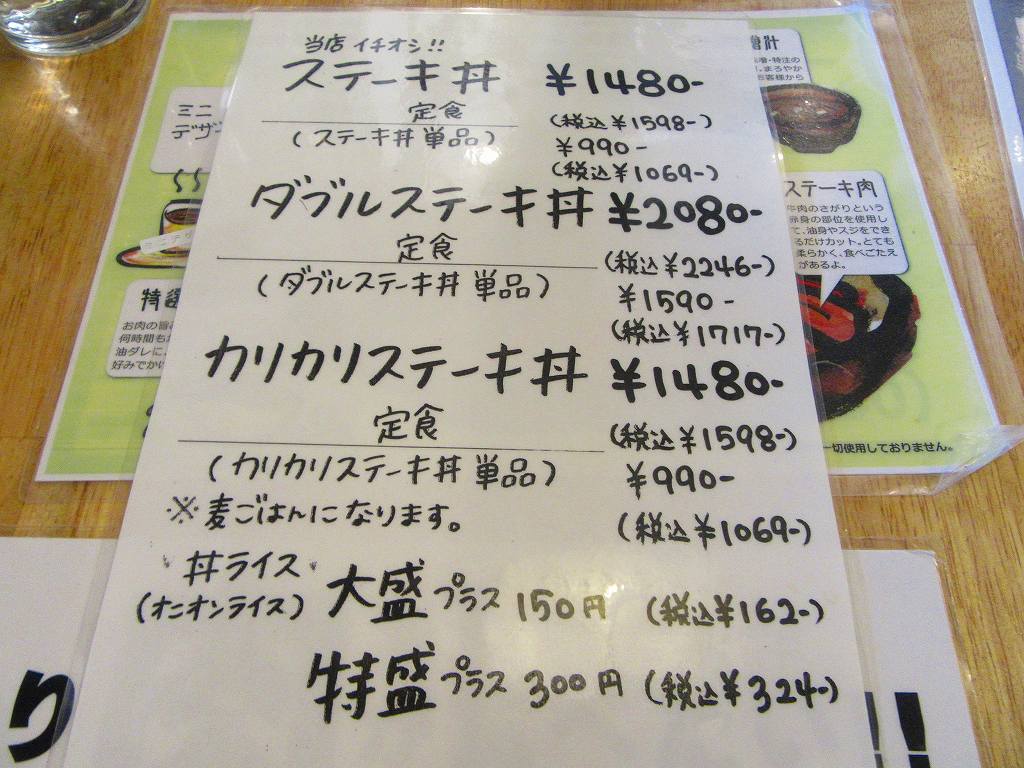 当店 イチオシ!!
ステーキ丼 ¥1480-
定食 (税込¥1598-)
(ステーキ丼 単品) ¥990-
(税込¥1069-)
ダブルステーキ丼 ¥2080-
定食 (税込¥2246-)
(ダブルステーキ丼 単品) ¥1590-
(税込¥1717-)
カリカリステーキ丼 ¥1480-
定食 (税込¥1598-)
(カリカリステーキ丼 単品) ¥990-
※麦ごはんになります。 (税込¥1069-)
丼ライス
(オニオンライス) 大盛 プラス 150円 (税込¥162-)
特盛 プラス 300円 (税込¥324-)
ミニ
デザ
特選
お肉の旨
何時間も
油ダレに、
好みでか
噌汁
噌・特注の
、まろやか
お客様から
ステーキ肉
牛肉のさがりという
赤身の部位を使用し
て、油身やスジをでき
るだけカット。とても
柔らかく、食べごたえ
があるよ。
一切使用しておりません。
り
!!